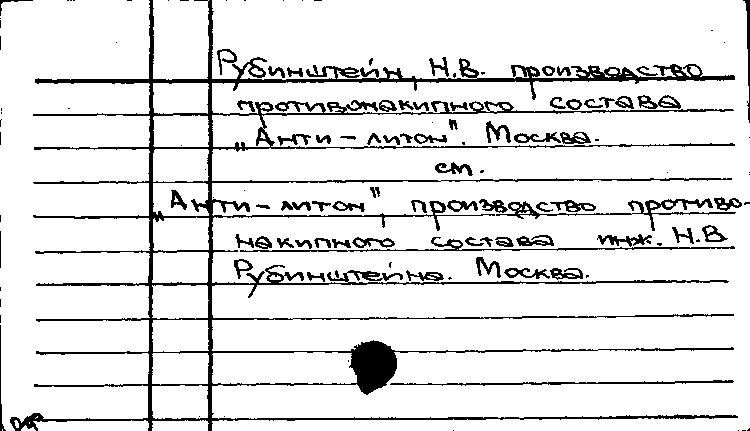 Рубинштейн, Н.В. производство
противонакипного состава
„Анти-литон". Москва.
см.
„Анти-литон", производство противо-
накипного состава инж. Н.В.
Рубинштейна. Москва.